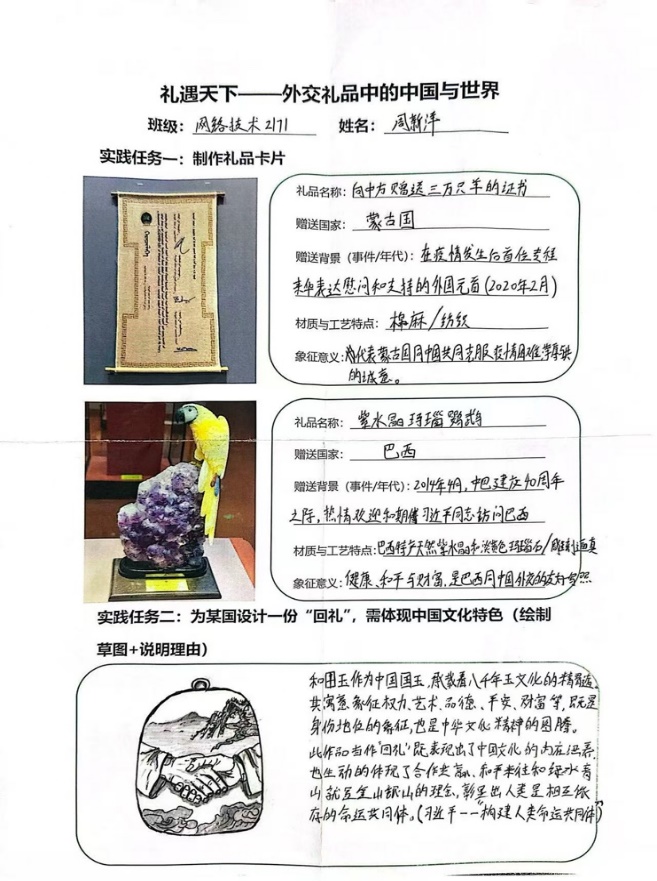 礼遇天下——外交礼品中的中国与世界
班级：网络技术2171 姓名：周新洋
实践任务一：制作礼品卡片
礼品名称：向中方赠送三万只羊的证书
赠送国家：蒙古国
赠送背景（事件/年代）：在疫情发生后首位专程
来华表达慰问和支持的外国元首(2020年2月)
材质与工艺特点：棉麻/纺织
象征意义：代表蒙古国同中国共同克服疫情困难
的诚意。
礼品名称：紫水晶玛瑙鹦鹉
赠送国家：巴西
赠送背景（事件/年代）：2014年4月，中巴建交40周年
之际，热情欢迎和期待习近平同志访问巴西
材质与工艺特点：巴西特产天然紫水晶和淡黄色玛瑙石/雕刻逼真
象征意义：健康、和平与财富，是巴西同中国外交的友好
实践任务二：为某国设计一份“回礼”，需体现中国文化特色（绘制
草图+说明理由）
和田玉作为中国国玉，承载着八千年玉文化的精髓，
其寓意象征权力、艺术、品德、平安、财富等，既是
身份地位的象征，也是中华文化精神的图腾。
此作品当作“回礼”既表现出了中国文化的内在涵养，
也生动的体现了合作共赢、和平来往和绿水青
山就是金山银山的理念，彰显出人类是相互依
存的命运共同体。(习近平——“构建人类命运共同体”)